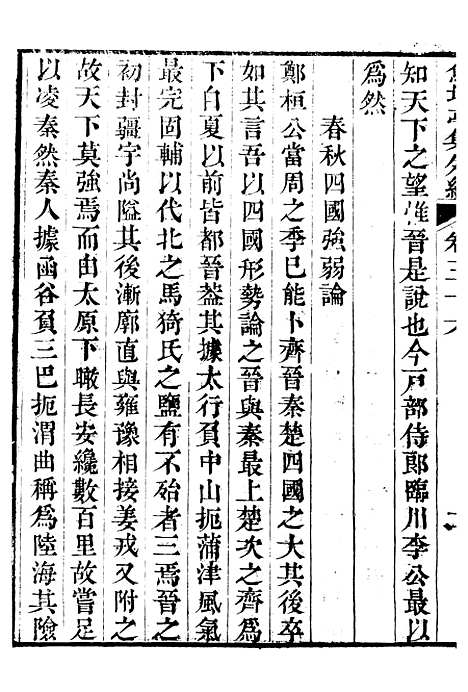 鮚埼亭集外編 卷三十六
知天下之望雖晉是說也今戸部侍郞臨川李公最以
爲然
春秋四國強弱論
鄭桓公當周之季已能卜齊晉秦楚四國之大其後卒
如其言吾以四國形勢論之晉與秦最上楚次之齊爲
下白夏以前皆都晉葢其據太行負中山扼蒲津風氣
最完固輔以代北之馬猗氏之鹽有不殆者三焉晉之
初封疆宇尚隘其後漸廓直與雍豫相接姜戎又附之
故天下莫強焉而由太原下瞰長安纔數百里故嘗足
以凌秦然秦人據函谷負三巴扼渭曲稱爲陸海其險